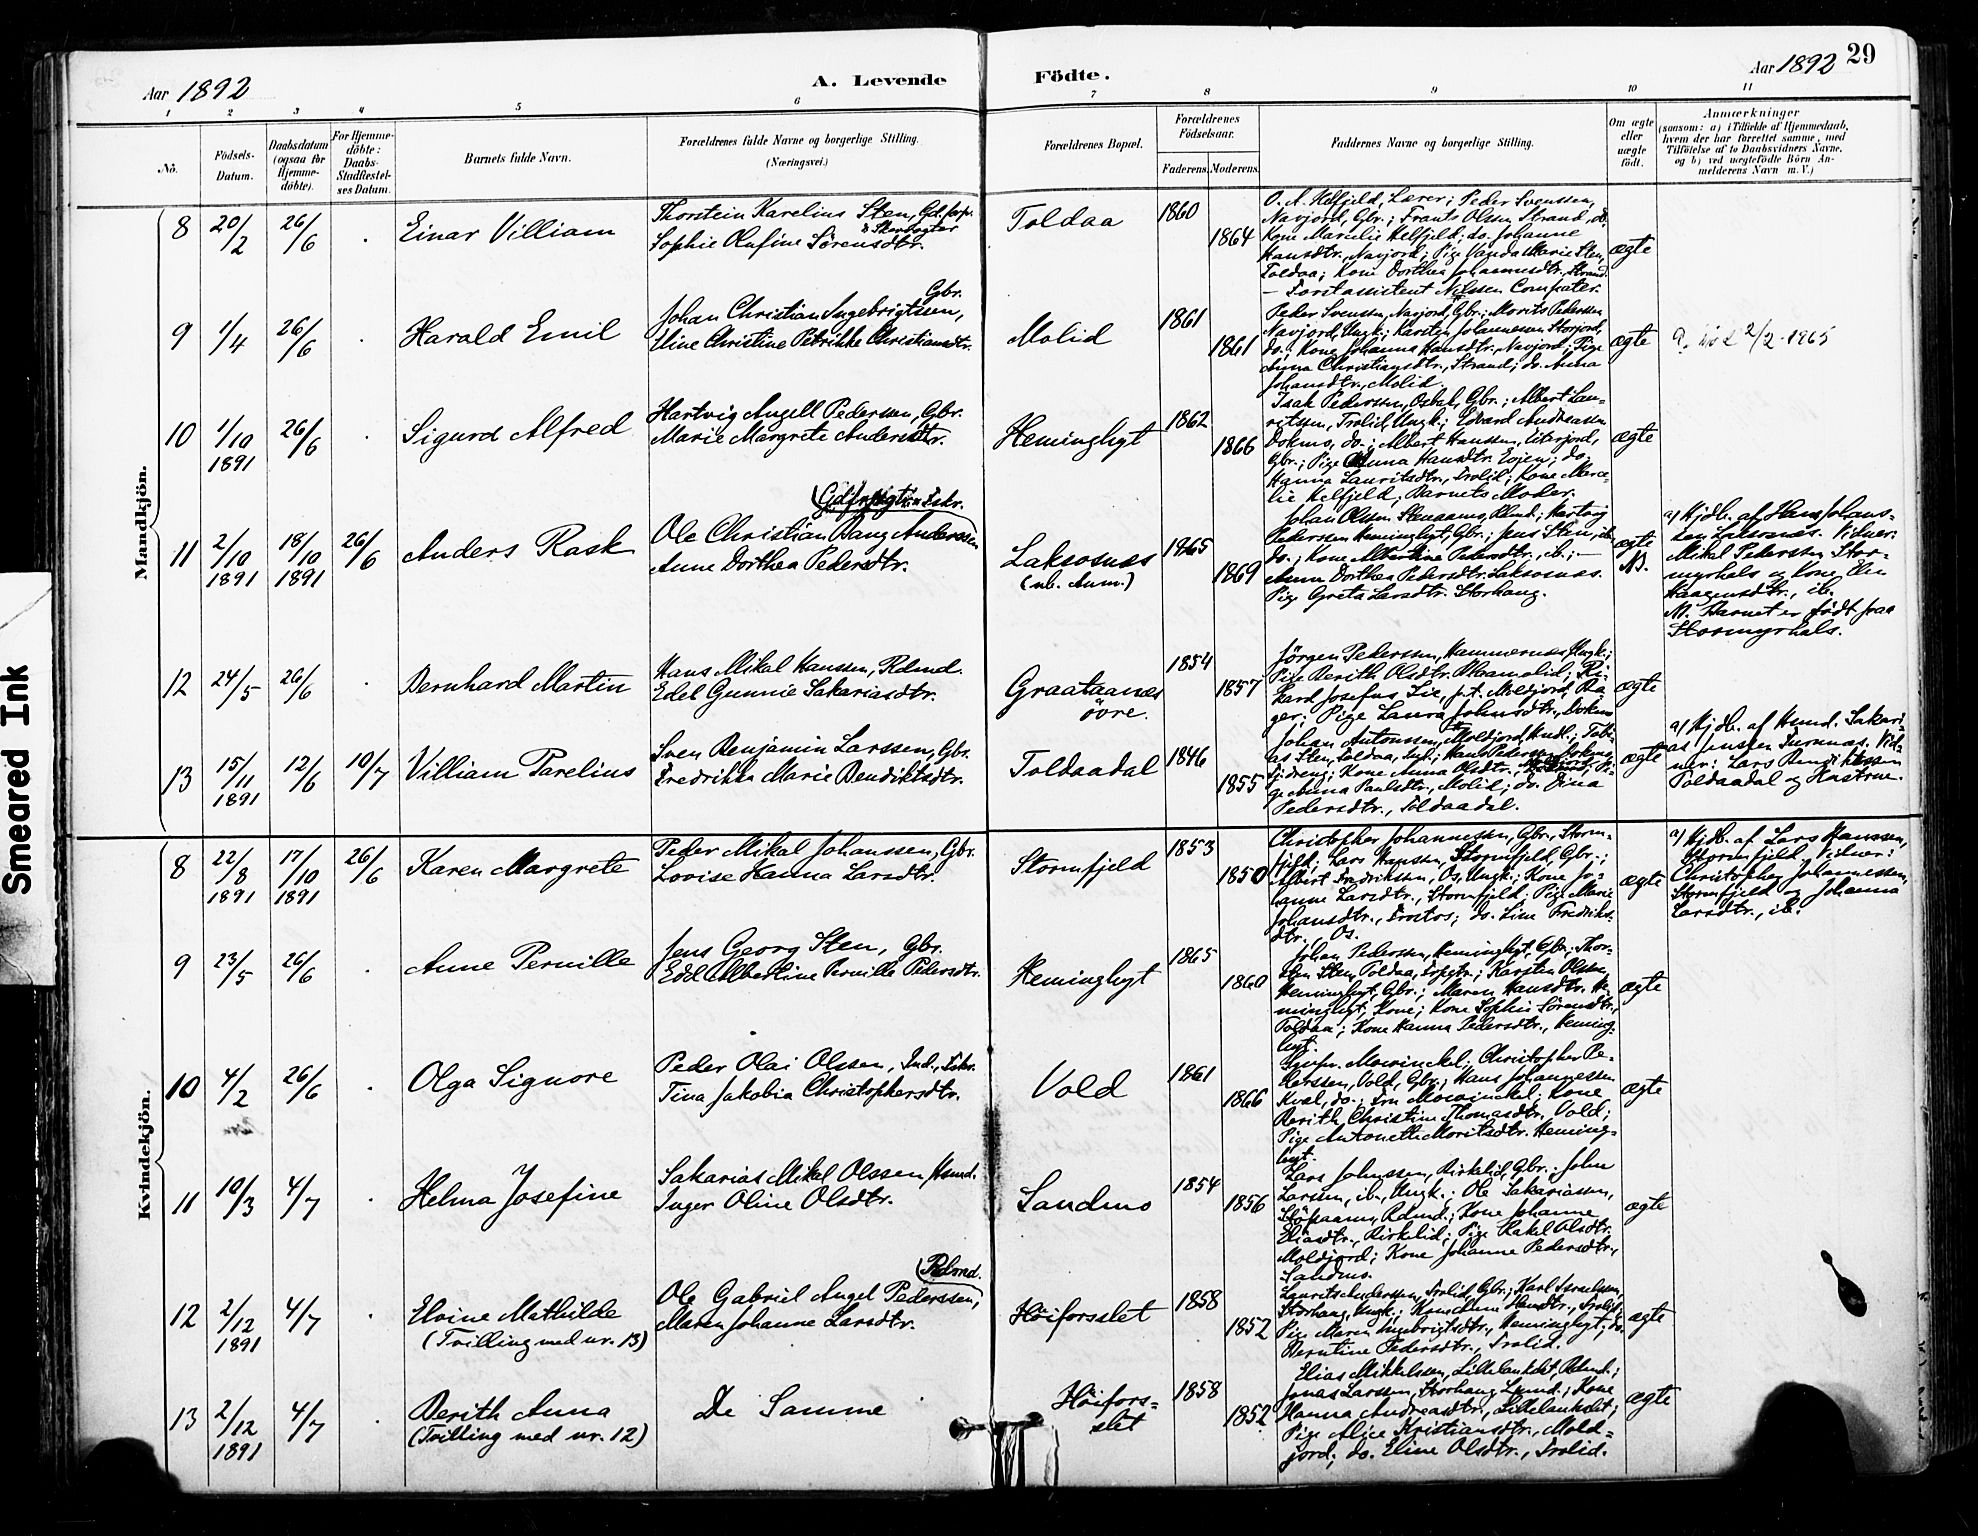 Aar 1892
A. Levende Födte.
Aar 1892 29
1 2 3 4 5 6 7 8 9 10 11
No.
Födsels-Datum.
Daabsdatum (ogsaa for Hjemme-döbte).
For Hjemme-döbte: Daabs-Stadfæstel-ses Datum.
Barnets fulde Navn.
Forældrenes fulde Navne og borgerlige Stilling.
(Næringsvei.)
Forældrenes Bopæl.
Forældrenes Födselsaar.
Faderens. Moderens.
Faddernes Navne og borgerlige Stilling.
Om ægte eller uægte födt.
Anmærkninger
(saasom: a) i Tilfælde af Hjemmedaab,
hvem der har forrettet samme, med
Tilföielse af to Daabsvidners Navne,
og b) ved uægtefödte Börn An-
melderens Navn m. V.)
Mandkjön.
8 20/2 26/6 Einar Villiam
Thorstein Karelius Sten, Gd. forp. & Skovvogter
Sophie Rufine Sörensdtr.
Toldaa 1860 1864
O. A. Helfjeld, Lærer; Peder Svenssen,
Navjord, Gbr.; Frants Olssen Strand, do.
Kone Marselie Helfjeld; do. Johanne
Hansdtr., Navjord; Pige Vanda Marie Sten,
Toldaa; Kone Dorthea Johannesdtr., Strand.
– Forstassistent Nilssen Compater.
ægte
9 1/4 26/6 Harald Emil
Johan Christian Ingebrigtssen, Gbr.
Eline Christine Petrikke Christiansdtr.
Molid 1861 1861
Peder Svenssen, Navjord, Gbr.; Morits Pederssen
Navjord, Ungk.; Karsten Johannessen Storjord,
do.; Kone Johanna Hansdtr., Navjord; Pige
Anna Christiansdtr., Strand; do. Anna
Johansdtr., Molid.
ægte
2/2-1965
10 1/10 1891 26/6 Sigurd Alfred
Hartvig Angell Pedersen, Gbr.
Marie Margrete Andersdtr.
Heminghyt 1862 1866
Isak Pederssen, Osbal, Gbr.; Albert Lau-
ritssen, Trolid, Ungk.; Edvard Andreassen
Dokmo, do.; Albert Hanssen, Eiterjord,
Gbr.; Pige Anna Hansdtr. Evjen; do.
Hanna Lauritsdtr., Trolid; Kone Marse-
lie Helfjeld, Barnets Moder.
ægte
11 2/10 1891 18/10 1891 26/6 Anders Rask
Ole Christian Bang Anderssen
Anne Dorthea Pedersdtr.
Laksosnæs
(nb. Anm.)
1865 1869
Johan Olssen Stenaamo, Rdmd.; Hartvig
Pederssen Heminghyt, Gbr.; Jens Sten, ib.
do.; Kone Albertine Pedersdtr., ib.; –
Anne Dorthea Pedersdtr. Laksosnæs.
Pige Greta Larsdtr. Storhaug.
ægte
a/ Hjdb. af Hans Johans-
sen Laksosnæs. Vidner:
Mikal Pederssen Stor-
myrhals og Kone Elen
Haagensdtr., ib.
NB. Barnet er födt paa
Stormyrhals.
12 24/5 26/6 Bernhard Martin
Hans Mikal Hanssen, Rdmd.
Edel Gunnie Sakariasdtr.
Graataanæs
övre.
1854 1857
Jörgen Pederssen, Hammernæs Ungk.;
Pige Berith Olsdtr.
kard Josefus Lie, p.t. Moldjord, Ba-
ger; Pige Laura Johnsdtr., Dokmo
ægte
13 15/11 1891 12/6 10/7 Villiam Parelius
Sven Benjamin Larssen, Gbr.
Fredrikke Marie Bendiktsdtr.
Toldaadal 1846 1855
Johan Antonssen, Moldjord, Hmd.; Tobi-
as Sten, Toldaa, Ungk.; Hans Pederssen Dokmo
Tjdreng; Kone Anna Olsdtr.,
ge Anna Paulsdtr., Molid; do. Dina
Pedersdtr., Toldaadal.
ægte
a/ Hjdb. af Hsmd. Sakari-
as Jenssen Furumo. Vid-
ner: Lars Bendikssen
Toldaadal og Hustru.
Kvindekjön.
8 22/8 1891 17/10 1891 26/6 Karen Margrete
Peder Mikal Johanssen, Gbr.
Lovise Hanna Larsdtr.
Stormfjeld 1853 1850
Christopher Johannessen, Gbr., Storm-
fjeld; Lars Hanssen, Stormfjeld, Gbr.;
Albert Fredrikssen, Os, Ungk.; Kone Jo-
hanne Larsdtr., Stormfjeld; Pige Marie
Johansdtr., Trostos; do. Line Fredriks-
dtr., Os.
ægte
a/ Hjdb. af Lars Hanssen,
Stormfjeld. Vidner:
Christopher Johannessen,
Stormfjeld og Johanna
Larsdtr., ib.
9 23/5 26/6 Anne Pernille
Jens Georg Sten, Gbr.
Edel Albertine Pernille Pedersdtr.
Heminghyt 1865 1860
Johan Pederssen, Heminghyt, Gbr.; Thor-
stein Sten, Toldaa, Forpgtr.; Karsten Olssen,
Heminghyt, Gbr.; Maren Hansdtr. He-
minghyt, Kone; Kone Sophie Sörensdtr.,
Toldaa; Kone Hanna Pedersdtr., Heming-
hyt.
ægte
10 4/2 26/6 Olga Signore
Peder Olai Olssen, Ind., Fskr.
Tina Jakobia Christophersdtr.
Vold 1861 1866
Mowinckel; Christopher Pe-
derssen, Vold, Gbr.; Hans Johannessen
Kval, do.; Fru Mowinckel; Kone
Berith Christine Thomasdtr. Vold;
Pige Antonette Moritsdtr. Heming-
hyt.
ægte
11 10/3 4/7 Helma Josefine
Sakarias Mikal Olssen Hsmd.
Inger Oline Olsdtr.
Sandmo 1854 1856
Lars Johnssen, Birkelid, Gbr.; John
Larssen, ib., Ungk.; Ole Sakariassen,
Stöpaamo, Rdmd.; Kone Johanne
Eliasdtr., Birkelid; Pige Rakel Olsdtr.
Moldjord; Kone Johanne Pedersdtr.,
Sandmo.
ægte
12 2/12 1891 4/7 Elvine Mathilde
(Tvilling med nr. 13)
Ole Gabriel Angel Pederssen, Rdmd.
Maren Johanne Larsdtr.
Höiforsslet 1858 1852
Laurits Anderssen, Trolid, Gbr.; Karl Israelssen,
Storhaug, Ungk.; Kone Anne Hansdtr., Trolid;
Pige Maren Ingebrigtsdtr., Heminghyt; do.
Berntine Pedersdtr., Trolid.
ægte
13 2/12 1891 4/7 Berith Anna
(Tvilling med nr. 12)
De Samme
Höifors-
slet
1858 1852
Elias Mikkelssen, Lillelankslet, Rdmd.;
Jonas Larssen, Storhaug, Lsmd.; Kone
Hanna Andreasdtr., Lillelankslet;
Pige Alice Kristiansdtr., Mold-
jord; do. Eline Olsdtr., Trolid.
ægte
Smeared Ink